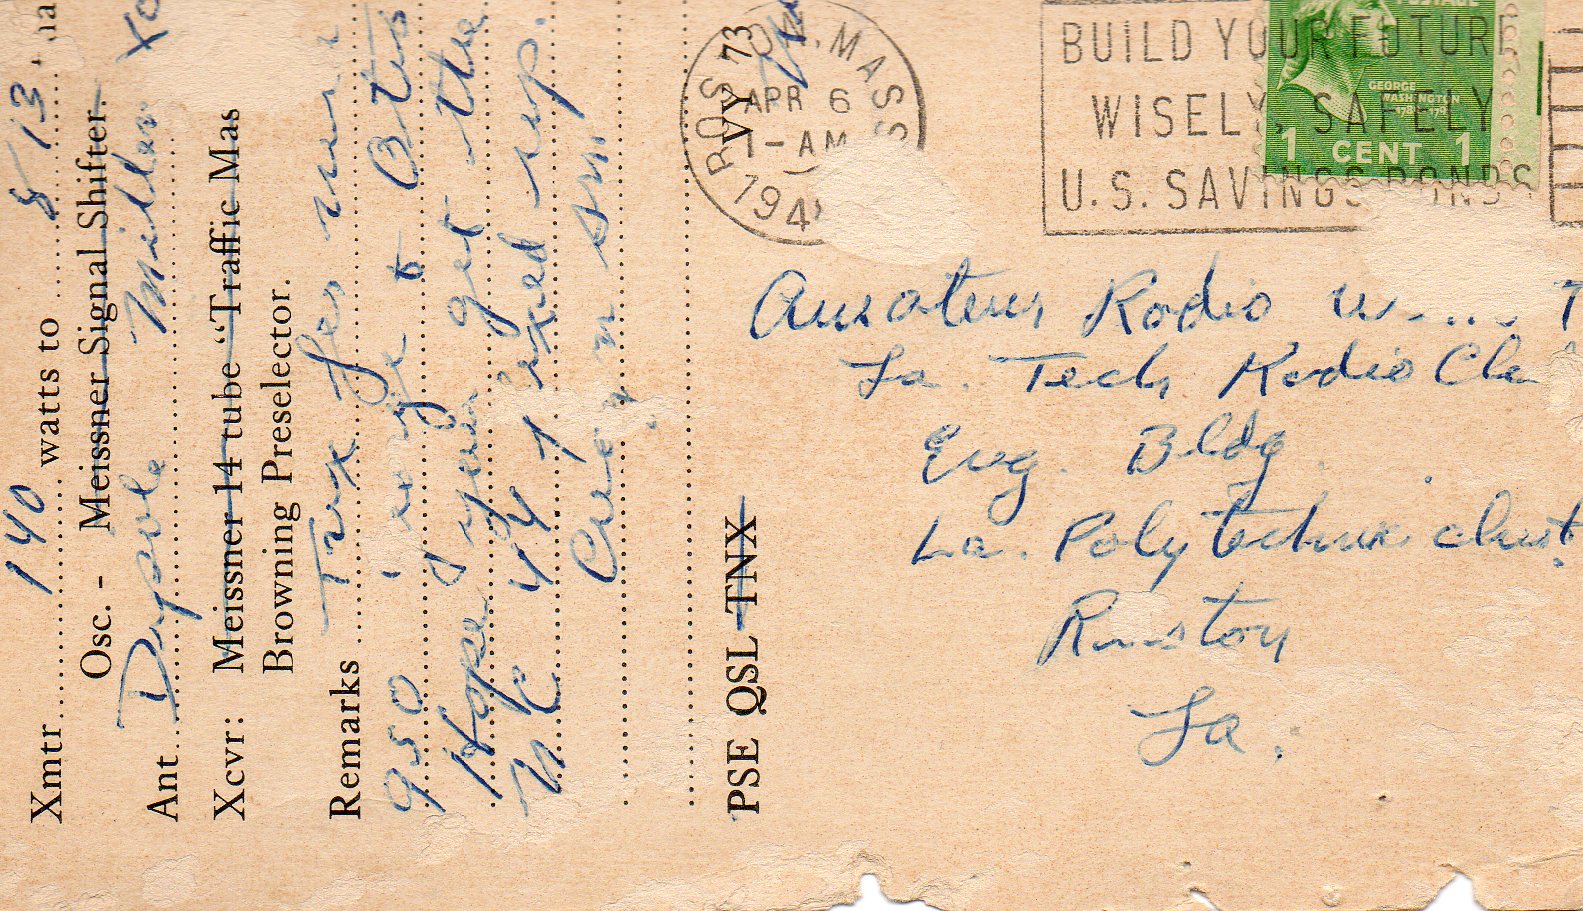 Xmtr 140 watts to 813
Osc. - Meissner Signal Shifter
Ant Dypole Miller
Xcvr: Meissner 14 tube "Traffic Mas
Browning Preselector.
Remarks Tnx fer nice
950 to Otis
Hope you get the
NC 44 fixed up.
VY 73
PSE QSL TNX
BOSTON, MASS
APR 6
1-AM
194
BUILD YOUR FUTURE
WISELY, SAFELY
U.S. SAVINGS BONDS
POSTAGE
GEORGE
WASHINGTON
1 CENT 1
Amateur Radio
La. Tech Radio
Eng. Bldg.
La. Polytechnic Inst.
Ruston
La.